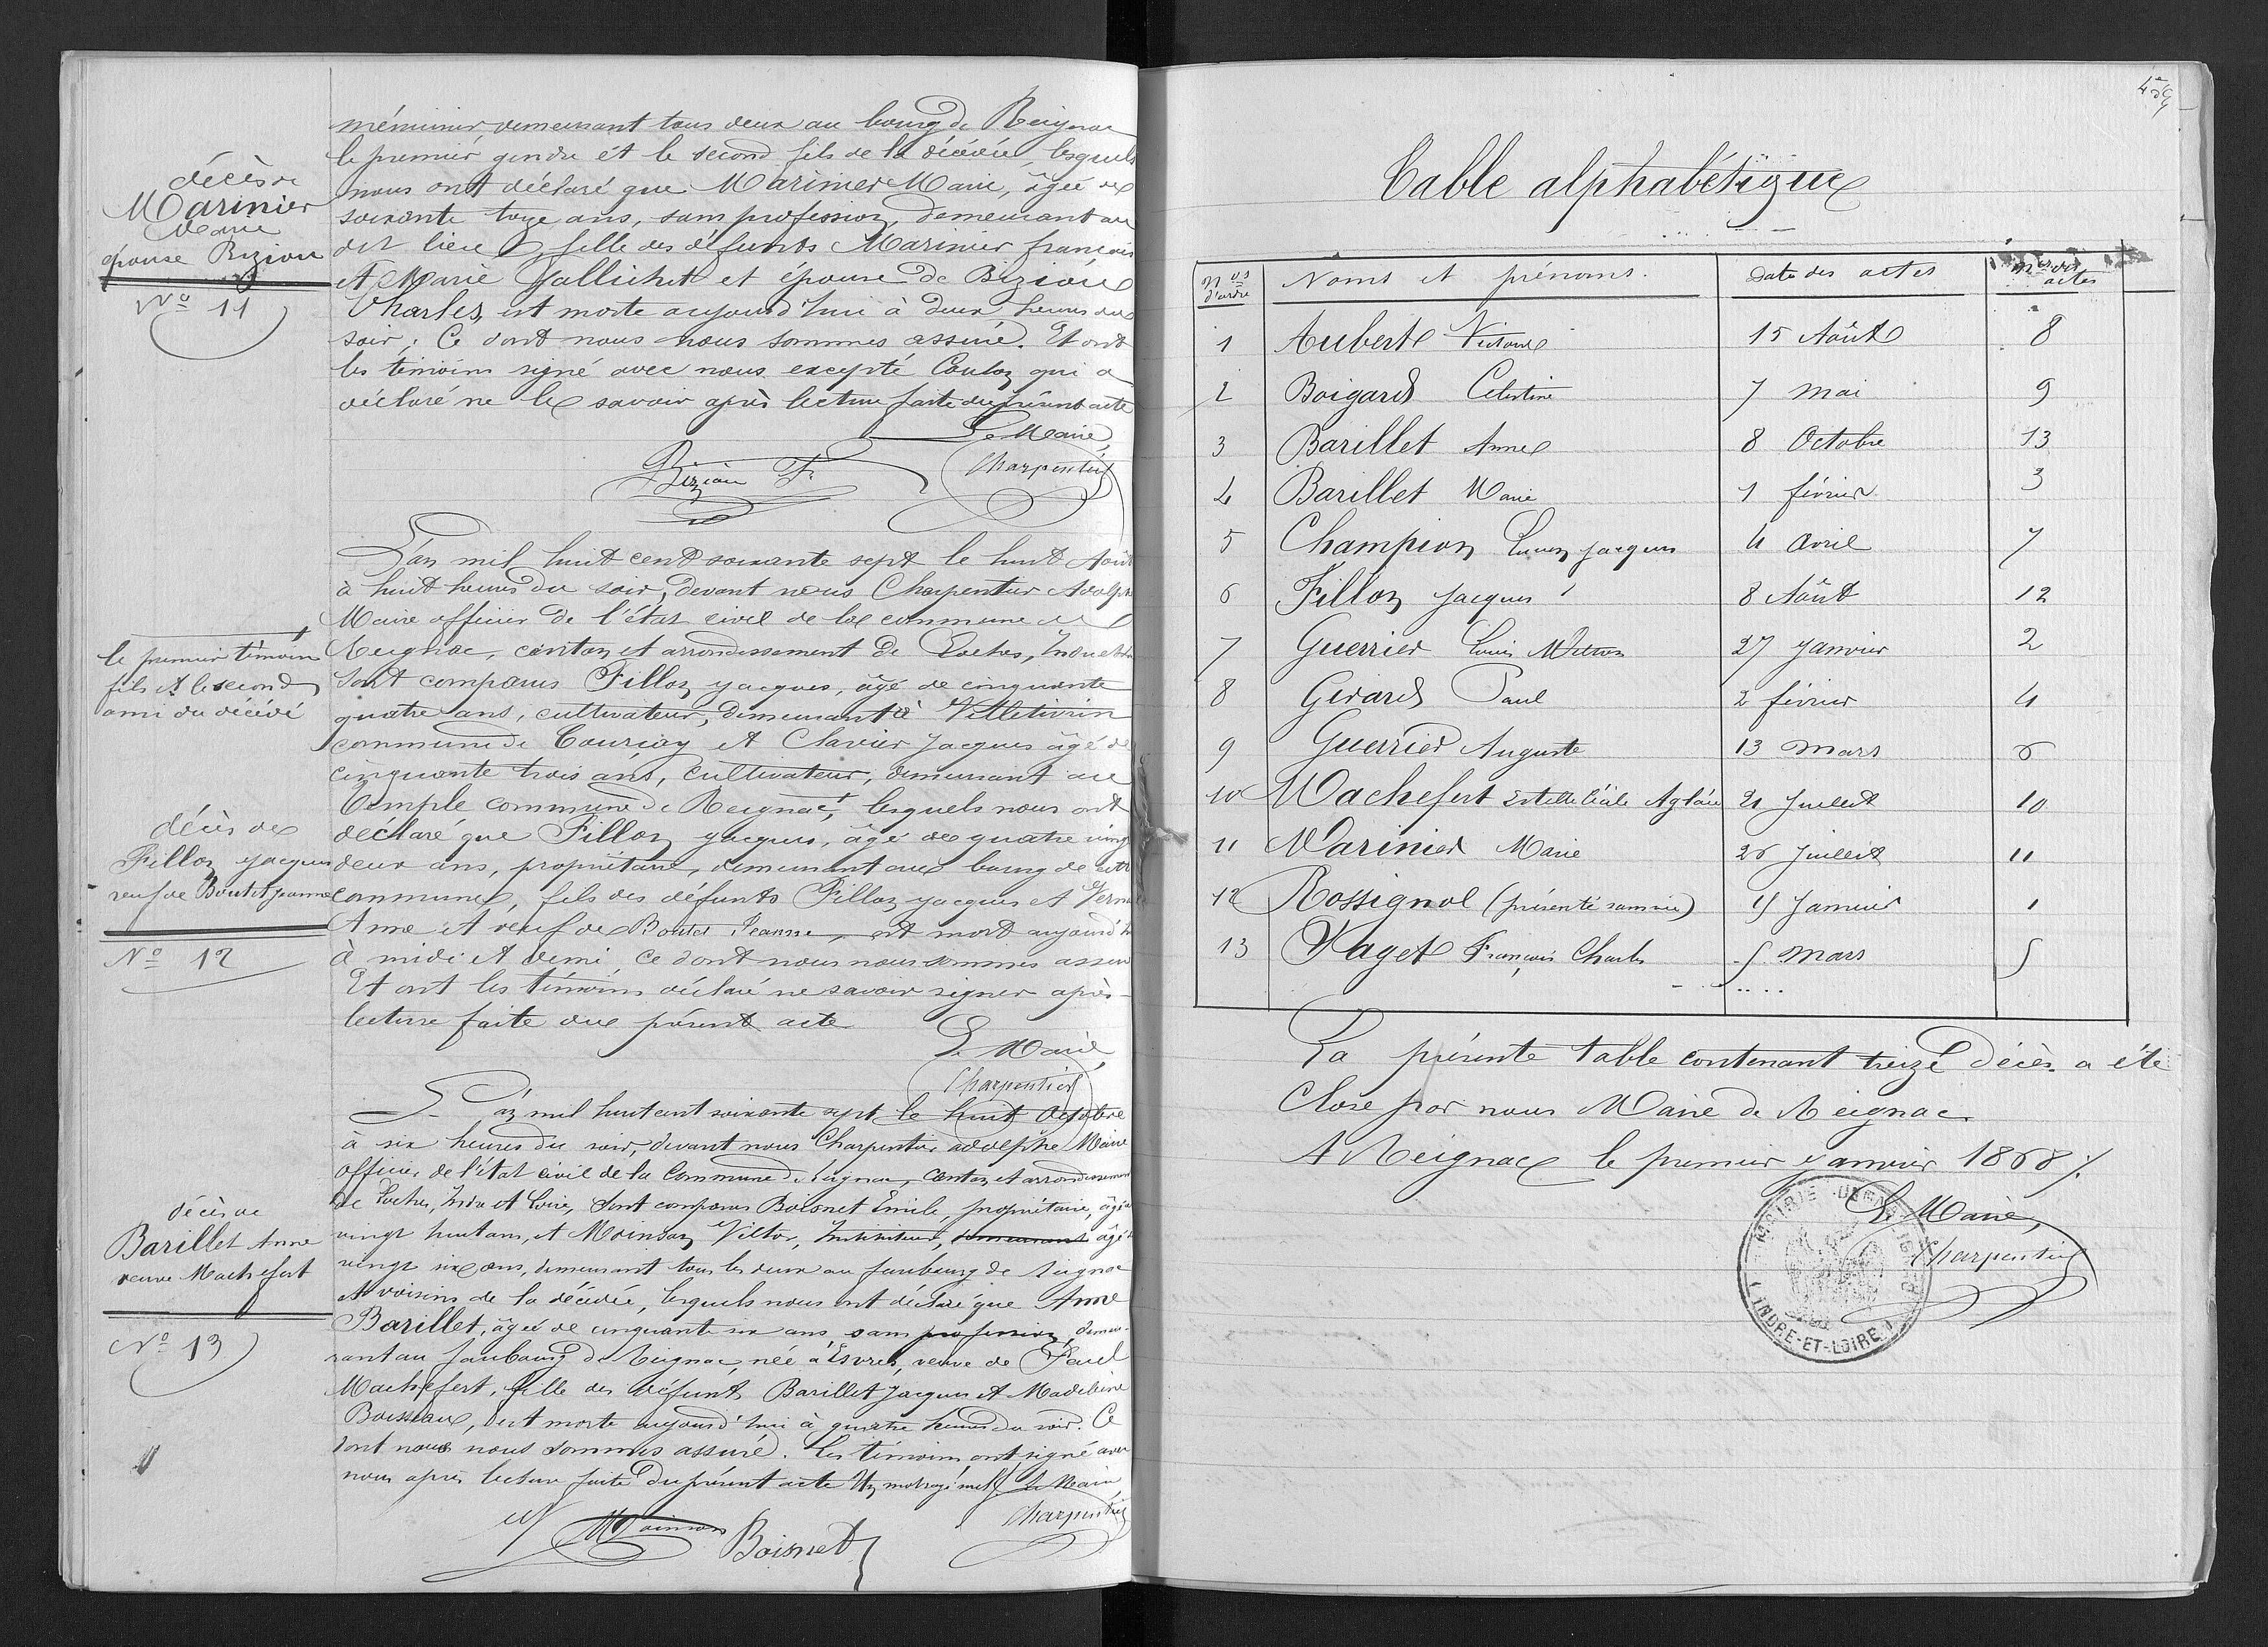 menuisier demeurant tous deux au bourg de Reignac
le premier gendre et le second fils de la décédée, lesquels
nous ont déclaré que Marinier Marie, âgée de
soixante treize ans, sans profession, demeurant au
dit lieu, fille des défunts Marinier françois
et Marie Gallichet et épouse de Biziou
Charles, est morte aujourd'hui à deux heures du
soir ; Ce dont nous nous sommes assuré. Et ont
les témoins signé avec nous excepté Coulon qui a
déclaré ne le savoir après lecture faite du présent acte
Le Maire,
Charpentier
Biziou F.
décès de
Marinier
Marie
épouse Biziou
No 11
L'an mil huit cent soixante sept le huit Août
à huit heures du soir, devant nous Charpentier Adolphe
Maire officier de l'état civil de la commune de
Reignac, canton et arrondissement de Loches, Indre et Loire
Sont comparus Fillon Jacques, âgé de cinquante
quatre ans, cultivateur, demeurant à
commune de Courçay et Clavier Jacques âgé de
cinquante trois ans, cultivateur, demeurant au
Temple commune de Reignac, lesquels nous ont
déclaré que Fillon Jacques, âgé de quatre vingt
deux ans, propriétaire, demeurant au bourg de cette
commune, fils des défunts Fillon Jacques et
Anne et veuf de Boutet Jeanne, est mort aujourd'hui
à midi et demi, ce dont nous nous sommes assuré
Et ont les témoins déclaré ne savoir signer après
lecture faite du présent acte
Le Maire,
Charpentier
le premier témoin
fils et le second
ami du décédé
décès de
Fillon Jacques
veuf de Boutet Jeanne
No 12
L'an mil huit cent soixante sept le huit Octobre
à six heures du soir, devant nous Charpentier adolphe Maire
officier de l'état civil de la Commune de Reignac, canton et arrondissement
de Loches, Indre et Loire, Sont comparus Boisnet Emile, propriétaire, âgé de
vingt huit ans, et Moinson Victor, Instituteur, demeurant âgé de
vingt six ans, demeurant tous les deux au faubourg de Reignac
et voisins de la décédée, lesquels nous ont déclaré que Anne
Barillet, âgée de cinquante six ans, sans profession, demeu-
rant au faubourg de Reignac, née à Esvres, veuve de Paul
Machefert, fille des défunts Barillet Jacques et Madeleine
Boisseau, est morte aujourd'hui à quatre heures du soir. Ce
dont nous nous sommes assuré. Les témoins ont signé avec
nous après lecture faite du présent acte Un mot rayé nul Le Maire
Charpentier
Moinson Boisnet
décès de
Barillet Anne
veuve Machefert
No 13
Table alphabétique
Nos d'ordre Noms et prénoms. Date des actes Nos des actes
1 Aubert Victoire 15 Août 8
2 Boigard Célestine 7 Mai 9
3 Barillet Anne 8 Octobre 13
4 Barillet Marie 1 février 3
5 Champion Jacques 4 avril 7
6 Fillon Jacques 8 Août 12
7 Guerrier Louis 27 Janvier 2
8 Girard Paul 2 février 4
9 Guerrier Auguste 13 Mars 6
10 Machefert Estelle Aglaée 21 Juillet 10
11 Marinier Marie 26 Juillet 11
12 Rossignol (présenté sans vie) Janvier 1
13 Paget François Charles 5 Mars 5
La présente table contenant treize décès a été
Close par nous Maire de Reignac
A Reignac le premier janvier 1868 ./.
Le Maire,
Charpentier
MAIRIE DE REIGNAC
INDRE-ET-LOIRE